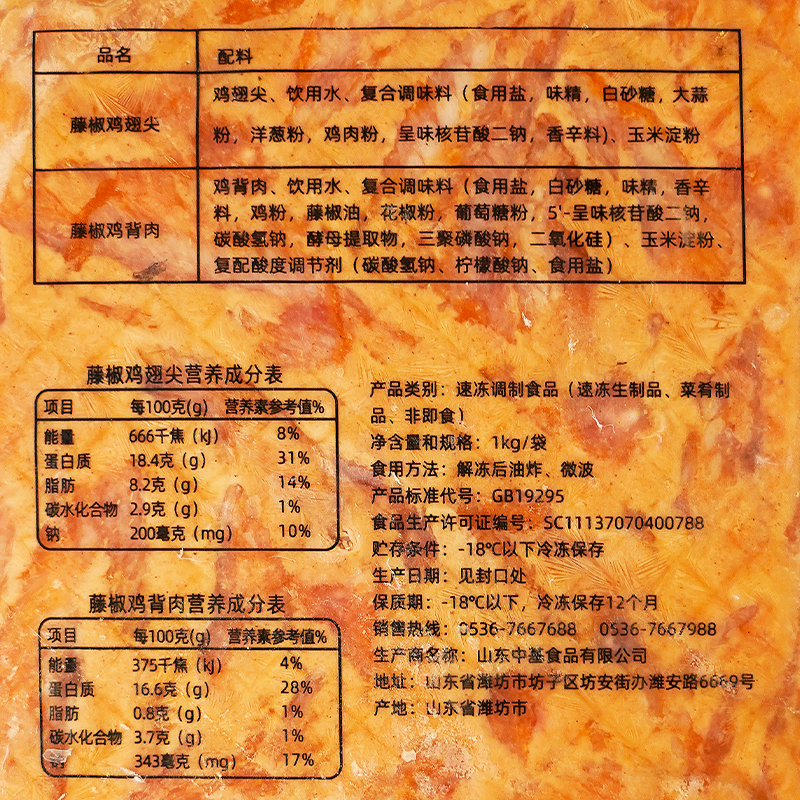 品名 配料
藤椒鸡翅尖
鸡翅尖、饮用水、复合调味料（食用盐，味精，白砂糖，大蒜
粉，洋葱粉，鸡肉粉，呈味核苷酸二钠，香辛料）、玉米淀粉
藤椒鸡背肉
鸡背肉、饮用水、复合调味料（食用盐，白砂糖，味精，香辛
料，鸡粉，藤椒油，花椒粉，葡萄糖粉，5'-呈味核苷酸二钠，
碳酸氢钠，酵母提取物，三聚磷酸钠，二氧化硅）、玉米淀粉、
复配酸度调节剂（碳酸氢钠、柠檬酸钠、食用盐）
藤椒鸡翅尖营养成分表
项目 每100克(g) 营养素参考值%
能量 666千焦（kJ） 8%
蛋白质 18.4克（g） 31%
脂肪 8.2克（g） 14%
碳水化合物 2.9克（g） 1%
钠 200毫克（mg） 10%
藤椒鸡背肉营养成分表
项目 每100克(g) 营养素参考值%
能量 375千焦（kJ） 4%
蛋白质 16.6克（g） 28%
脂肪 0.8克（g） 1%
碳水化合物 3.7克（g） 1%
钠 343毫克（mg） 17%
产品类别：速冻调制食品（速冻生制品、菜肴制
品、非即食）
净含量和规格：1kg/袋
食用方法：解冻后油炸、微波
产品标准代号：GB19295
食品生产许可证编号：SC11137070400788
贮存条件：-18℃以下冷冻保存
生产日期：见封口处
保质期：-18℃以下，冷冻保存12个月
销售热线：0536-7667688 0536-7667988
生产商名称：山东中基食品有限公司
地址：山东省潍坊市坊子区坊安街办潍安路6669号
产地：山东省潍坊市